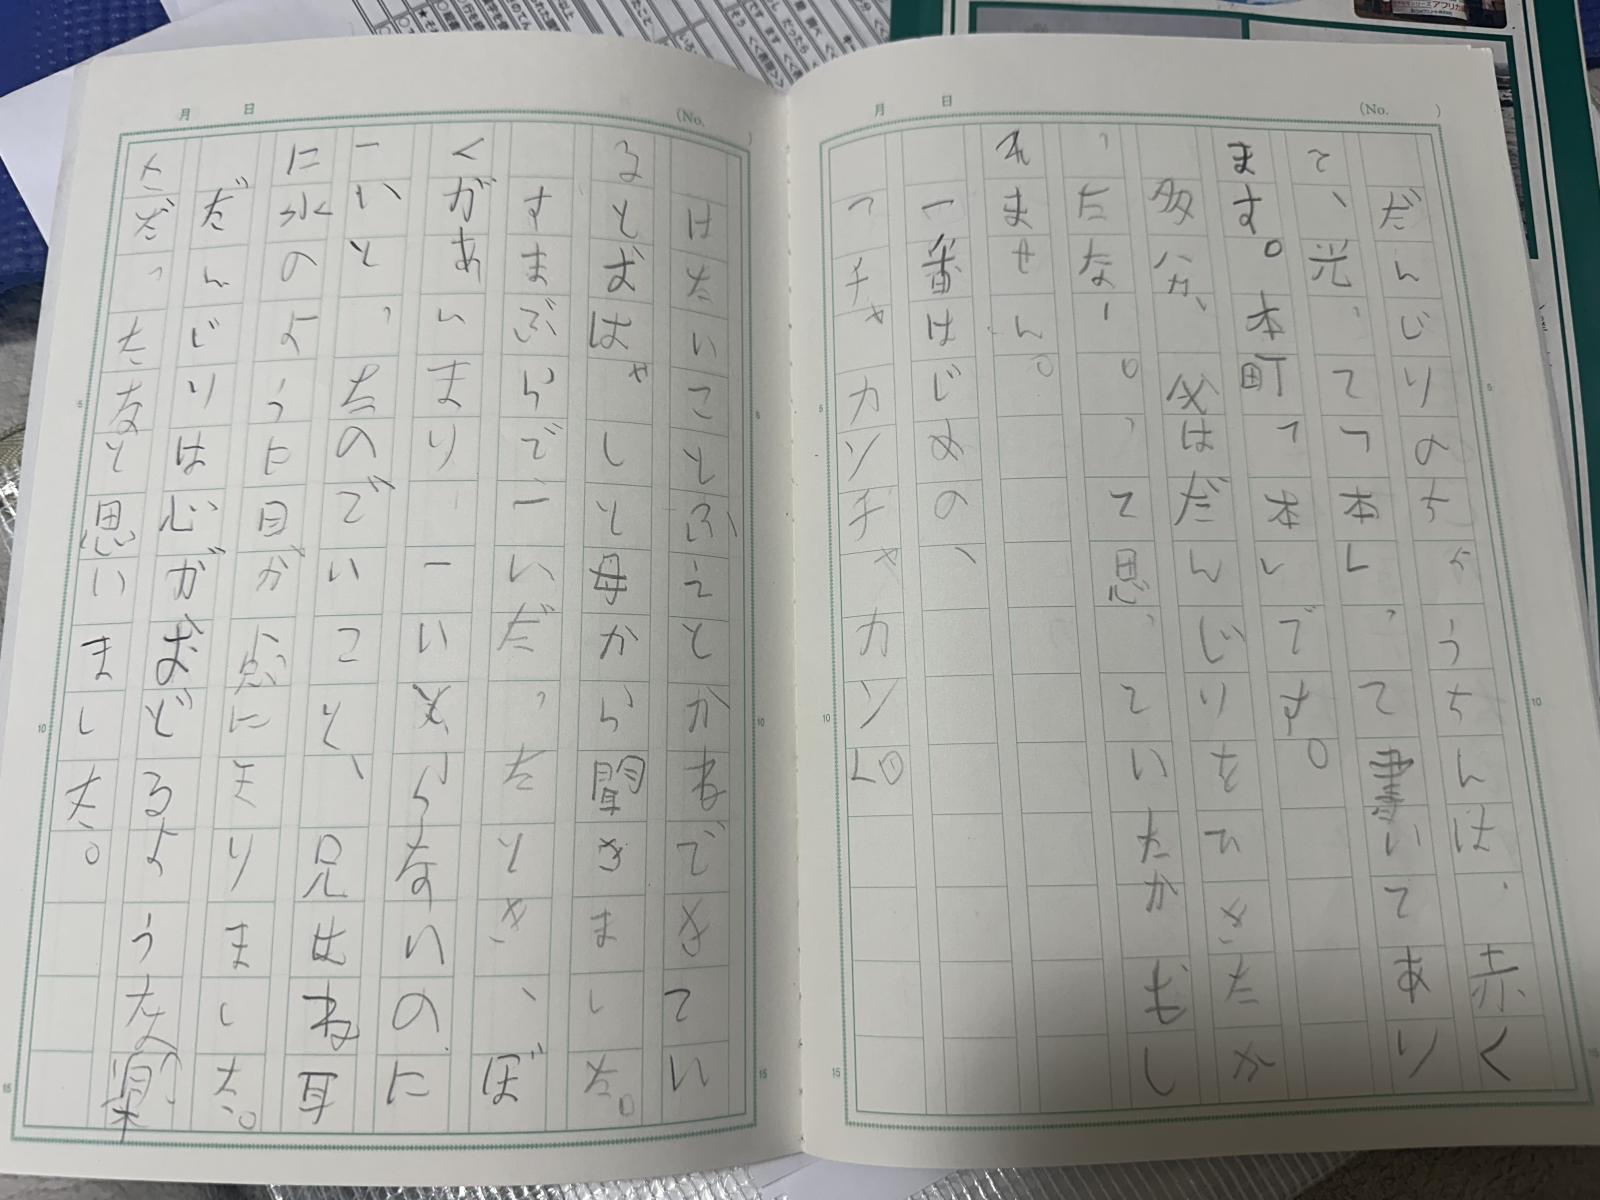 だんじりのちょうちんは、赤く
て、光って「本」って書いてあり
ます。本町「本」です。
多分、父はだんじりをひきたか
ったなー。って思っていたかもし
れません。
一番はじめの、
「チャカンチャカン」。
はたいことふえとかねできてい
るとおはゃしと母から聞きました。
すまぶらで一いだったとき、ぼ
くがあいまり一いとらないのに
一いとったのでいこと、兄はね耳
に水のように目が点になりました。
だんじりは心がおどるような楽
さだったなと思いました。
月 日 (No. )
月 日 (No. )